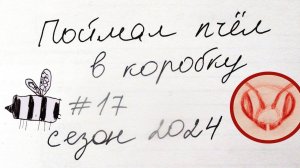 Поймал пчёл
в коробку
#17
сезон 2024